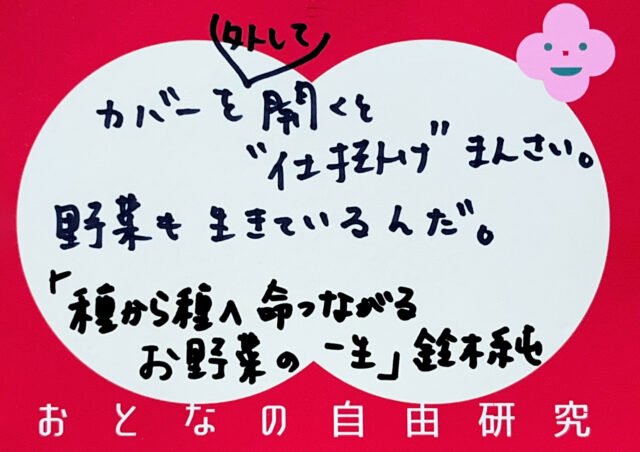 外して
カバーを開くと
"仕掛け"まんさい。
野菜も生きているんだ。
「種から種へ 命つながる
お野菜の一生」鈴木純
おとなの自由研究